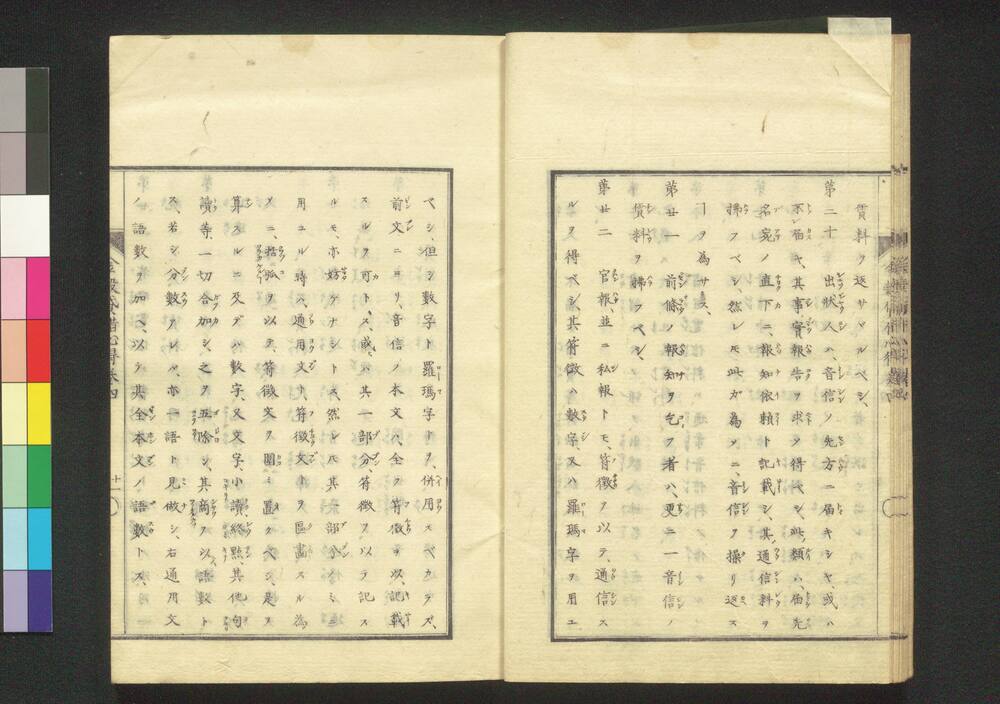 賃料ヲ返サヾルベシ、
第二十　出狀人ハ、音信ノ先方ニ届キシヤ、或ハ
不届キ、其事實報告ヲ求ヲ得ベシ、此類ハ、届先
名宛ノ直下ニ、報知依頼ト記載シ、其通信料ヲ
拂フベシ、然レモ此ガ為メニ、音信ヲ操リ返ス
ヿヲ為サス、
第廿一　前條ノ報知ヲ乞フ者ハ、更ニ一音信ノ
賃料ヲ拂フベシ、
第廿二　官報、並ニ私報トモ、符徴ヲ以テ、通信ス
ルヲ得ベシ、其符徴ハ數字、又ハ羅瑪字ヲ用ユ
ベシ但シ數字ト羅瑪字トヲ、併用スベカラズ、
前文ニヨリ、音信ノ本文ハ、全ク符徴ヲ以、記載
スルヲ可トス、或ハ其一部分、符徴ヲ以テ記ス
ルモ、亦妨ゲナシトス、然レモ其一部分ノミ
用ユル時ハ、通用文ト符徴文トヲ區畫スル為
メニ、括弧ヲ以テ、符徴文ヲ圍ミ置クベシ、是ヲ
算スルニ及デハ數字、又文字、小讀、終點、其他句
讀等、一切合加シ、之ヲ五除シ、其商ヲ以、語數ト
ス、若シ分數アレバ、亦一語ト見做シ、右通用文
ノ語數ヲ加ヘ、以テ其全本文ノ語數トス、
十一